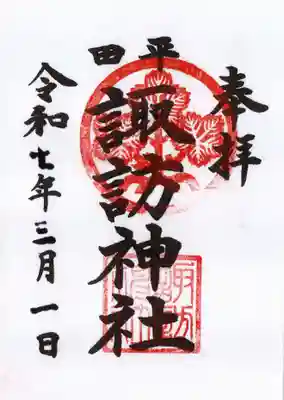 奉拝
田平
諏訪神社
令和七年三月一日